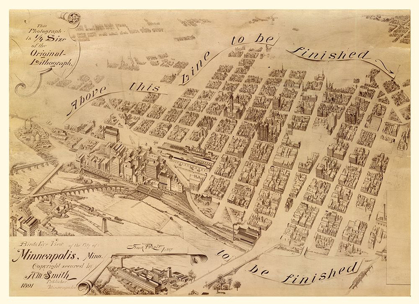 This
Photograph
is 1/4 Size
of the
Original
Lithograph.
Above this Line to be finished
to be finished
Birds Eye View of the City of
Minneapolis, Minn.
Copyright secured by
A.M. Smith
1891